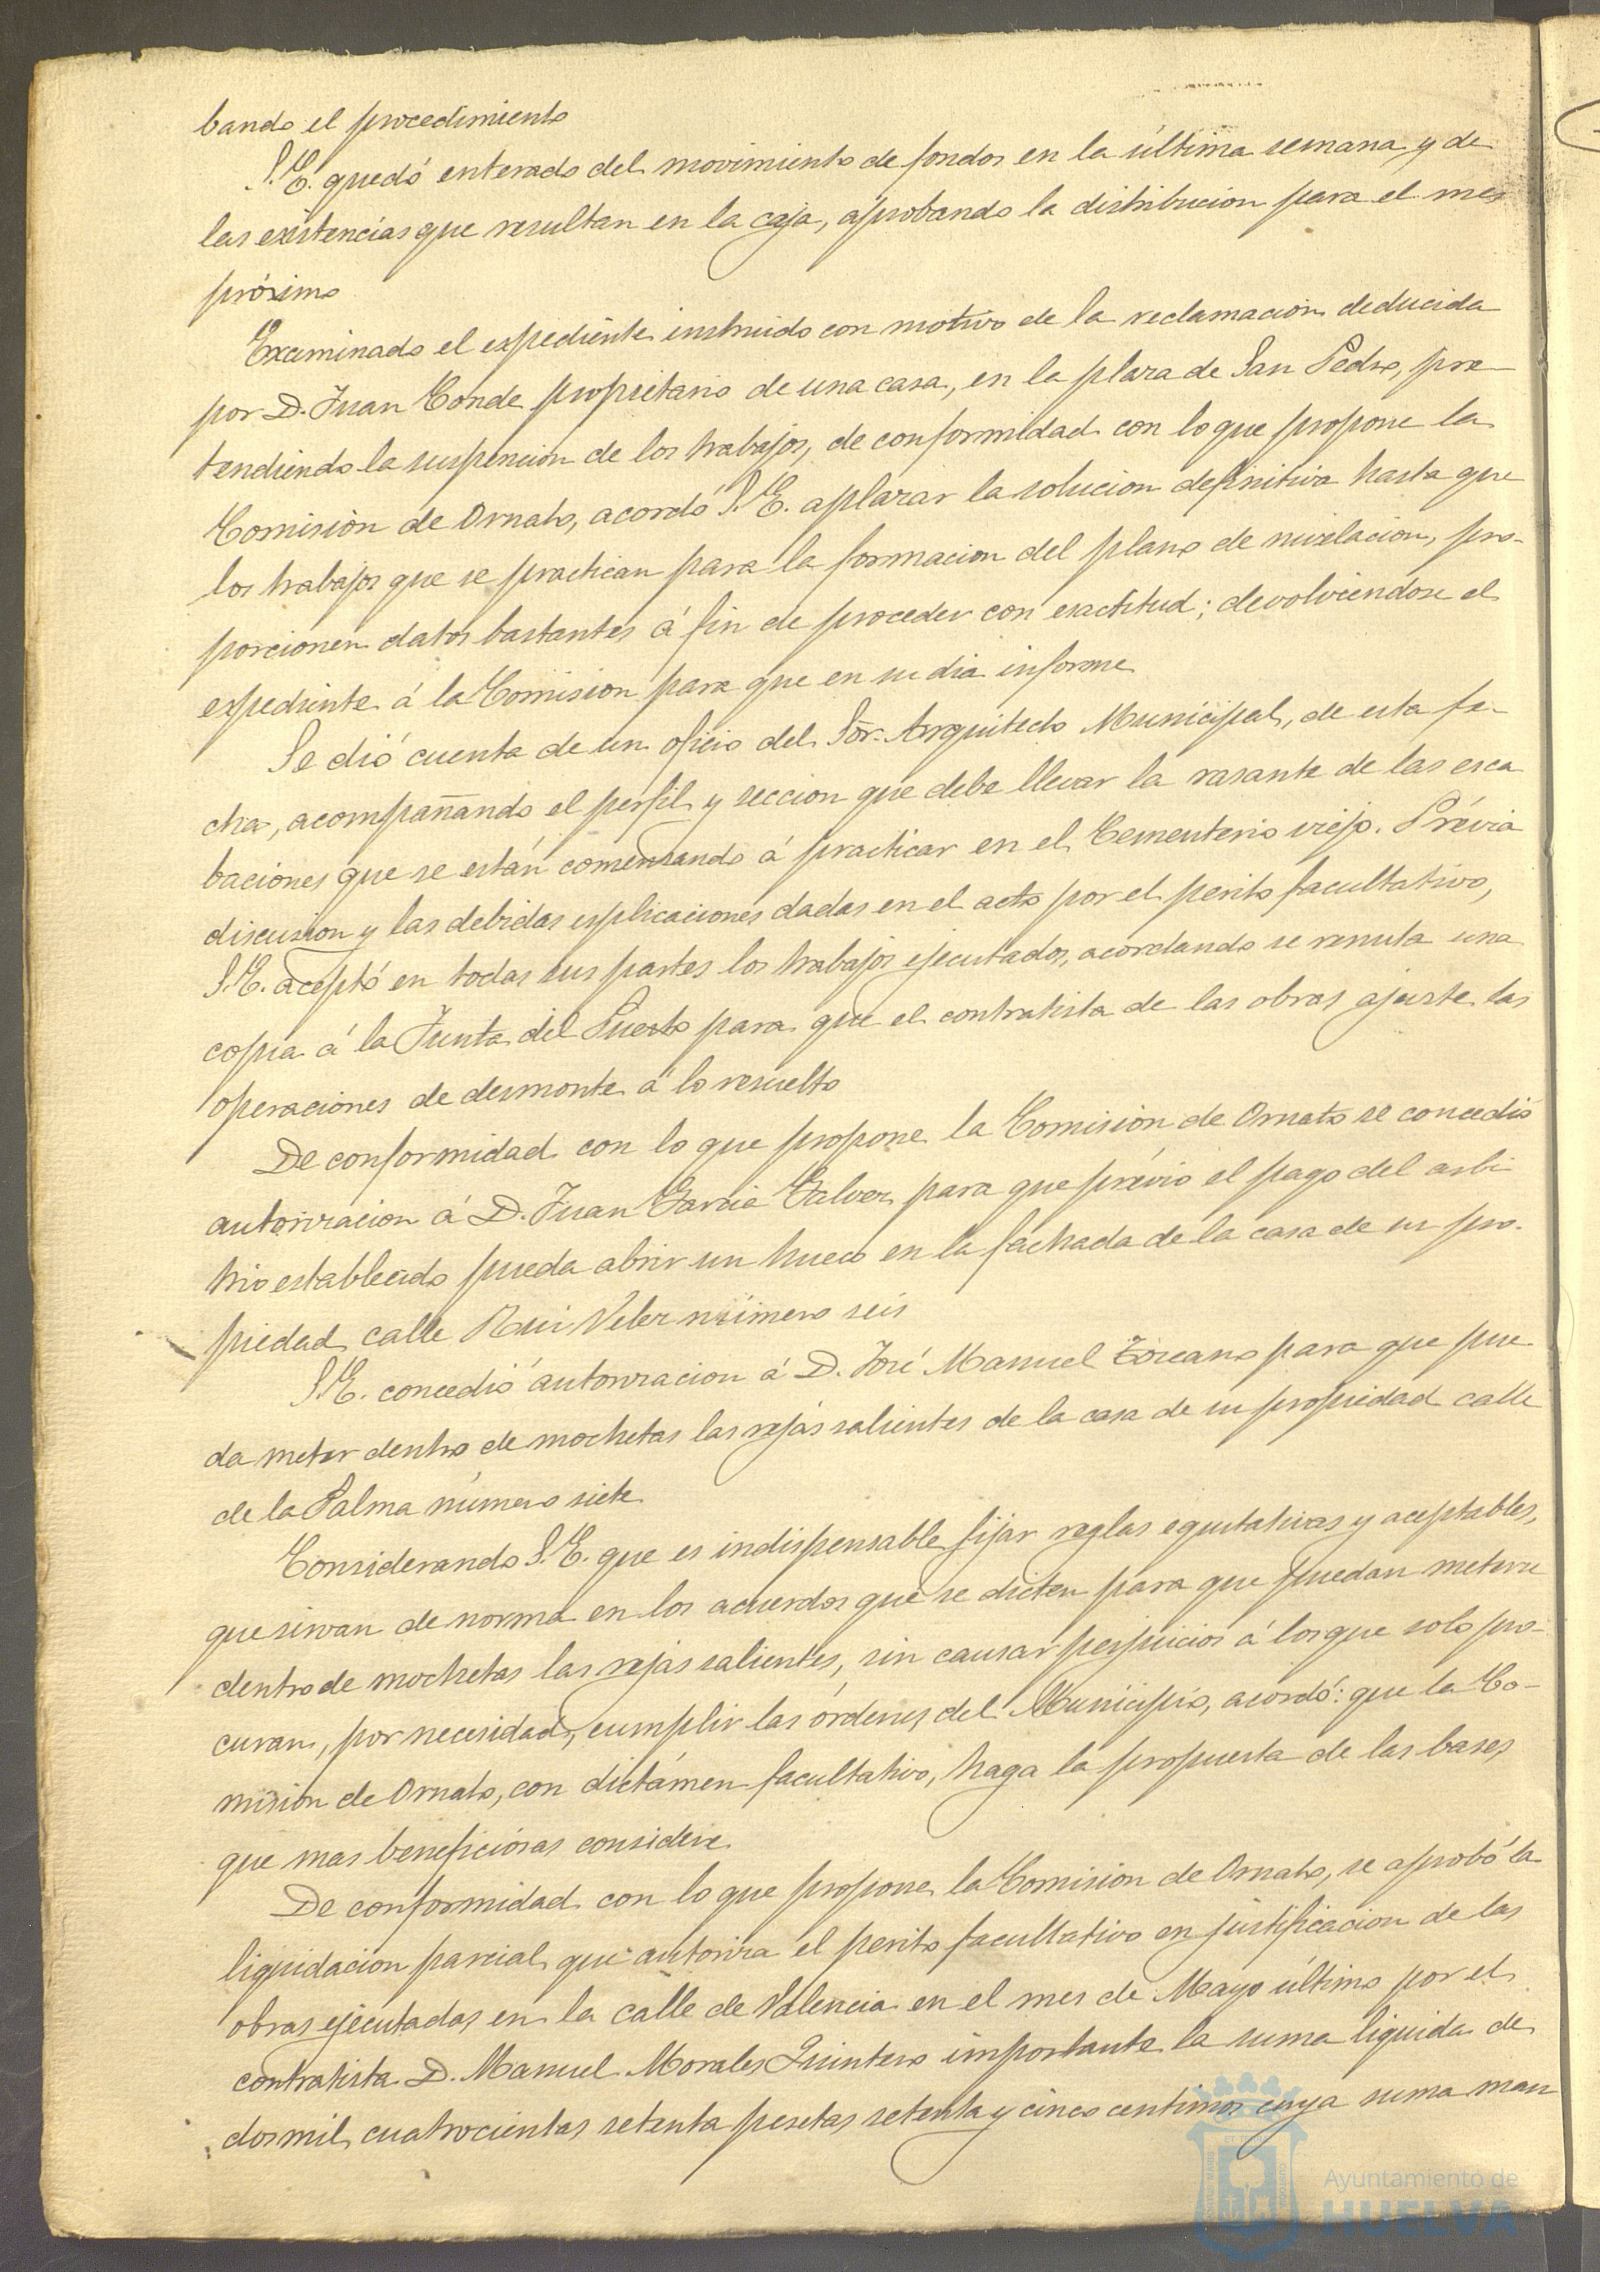 bando el procedimiento
S.E. quedó enterado del movimiento de fondos en la última semana y de
las existencias que resultan en la caja, aprobando la distribucion para el mes
próximo
Examinado el expediente instruido con motivo de la reclamacion deducida
por D. Juan Conde propietario de una casa, en la plaza de San Pedro, pre-
tendiendo la suspencion de los trabajos, de conformidad con lo que propone la
Comisión de Ornato, acordó S.E. aplazar la solucion definitiva hasta que
los trabajos que se practican para la formacion del plano de nivelacion, pro-
porcionen datos bastantes á fin de proceder con exactitud; devolviendose el
expediente á la Comision para que en su dia informe
Se dió cuenta de un oficio del Sor. Arquitecto Municipal, de esta fe-
cha, acompañando el perfil y seccion que debe llevar la rasante de las esca
baciones que se están comenzando á practicar en el Cementerio viejo. Prévia
discusion y las debidas esplicaciones dadas en el acto por el perito facultativo,
S.E. aceptó en todas sus partes los trabajos ejecutados, acordando se remita una
copia á la Junta del Puerto para que el contratista de las obras ajuste las
operaciones de desmonte á lo resuelto
De conformidad con lo que propone la Comisión de Ornato se concedió
autorizacion á D. Juan Garcia Galvez para que prévio el pago del arbi
trio establecido pueda abrir un hueco en la fachada de la casa de su pro-
piedad calle Rui Velez número seis
S.E. concedió autorizacion á D. José Manuel Toscano para que pue
da meter dentro de mochetas las rejas salientes de la casa de su propiedad calle
de la Palma número siete
Considerando S.E. que es indispensable fijar reglas equitativas y aceptables,
que sirvan de norma en los acuerdos que se dicten para que puedan meterse
dentro de mochetas las rejas salientes, sin causar perjuicios á los que solo pro-
curan, por necesidad, cumplir las órdenes del Municipio, acordó: que la Co-
misión de Ornato, con dictámen facultativo, haga la propuesta de las bases
que mas beneficiosas considere.
De conformidad con lo que propone la Comision de Ornato, se aprobó la
liquidacion parcial que autoriza el perito facultativo en justificacion de las
obras ejecutadas en la calle de Valencia en el mes de Mayo último por el
contratista D. Manuel Morales Quintero importante la suma liquida de
dos mil cuatrocientas setenta pesetas setenta y cinco centimos cuya suma man
Ayuntamiento de
HUELVA